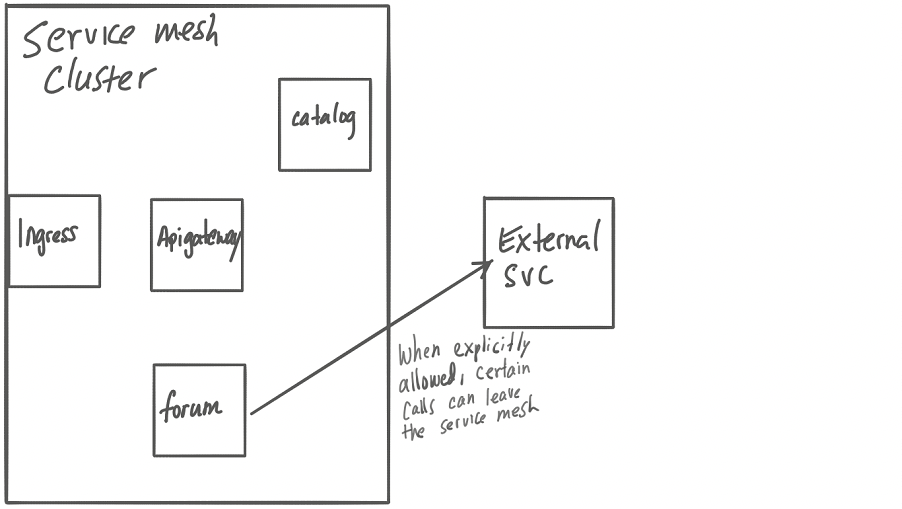 Service mesh
Cluster
catalog
Ingress
Apigateway
forum
External
svc
When explicitly
allowed, certain
calls can leave
the service mesh